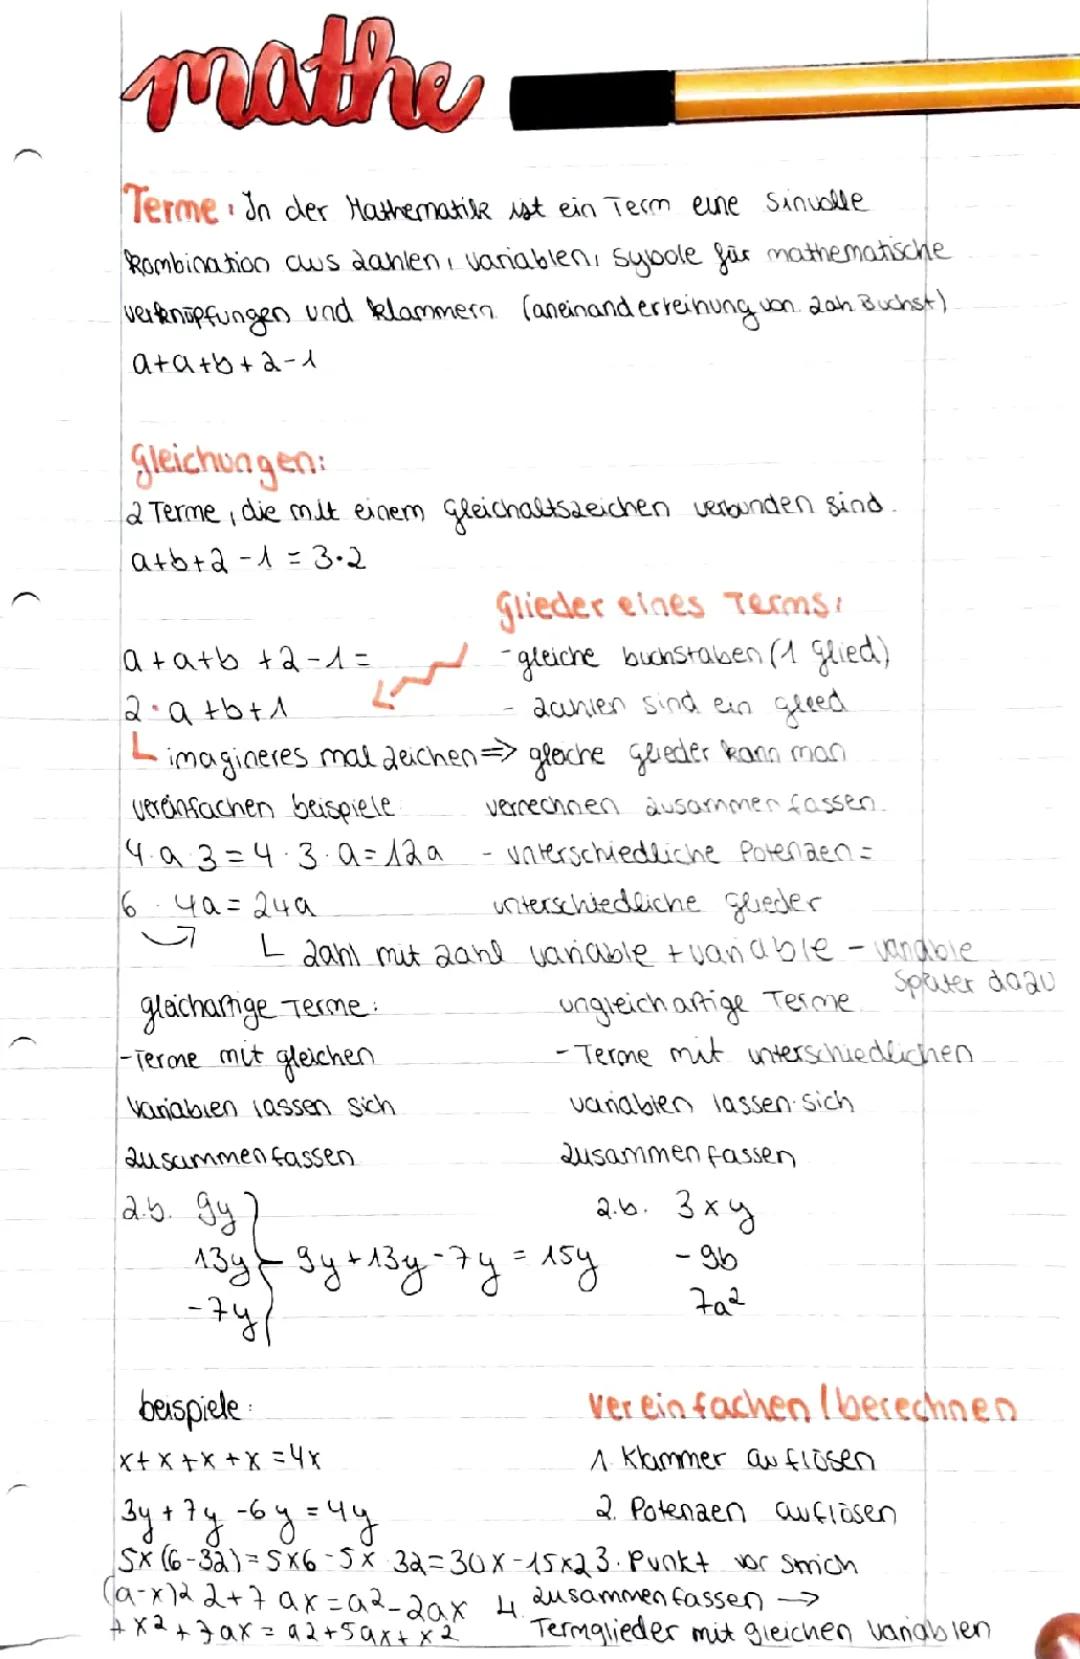 mathe
Terme: In der Mathematik ist ein Term eine Sinvolle
kombination aus zahlen, variablen, sybole für mathematische
verknüpfungen und klammern (aneinanderreihung von zah Buchst)
a+a+b+2-1
gleichungen:
2 Terme, die mit einem gleichaltszeichen verbunden sind.
a+b+2-1 = 3·2
glieder eines Terms:
a+a+b+2-1=
- gleiche buchstaben (1 glied)
2·a+b+1
- zahlen sind ein glied
imagineres mal zeichen => gleiche glieder kann man
vereinfachen beispiele
verrechnen zusammen fassen.
4·a·3=4·3·a=12a
- unterschiedliche Potenzen =
6·4a=24a
unterschiedliche glieder
zahl mit zahl variable + variable - variable
später dazu
gleichartige Terme:
ungleichartige Terme
-Terme mit gleichen
-Terme mit unterschiedlichen
variablen lassen sich
variablen lassen sich
zusammenfassen
zusammenfassen
z.b. 9y
z.b. 3xy
13y 9y+13y-7y=15y
-9b
-7y
7a²
beispiele:
vereinfachen / berechnen
x+x+x+x=4x
1. Klammer auflösen
3y+7y-6y=4y
2. Potenzen auflösen
5x(6-3z)=5x6-5x·3z=30x-15xz
3. Punkt vor strich
(a-x)2 2+7ax=a2-2ax
4. zusammenfassen →
+x2+7ax=a2+5ax+x2
Termglieder mit gleichen variablen